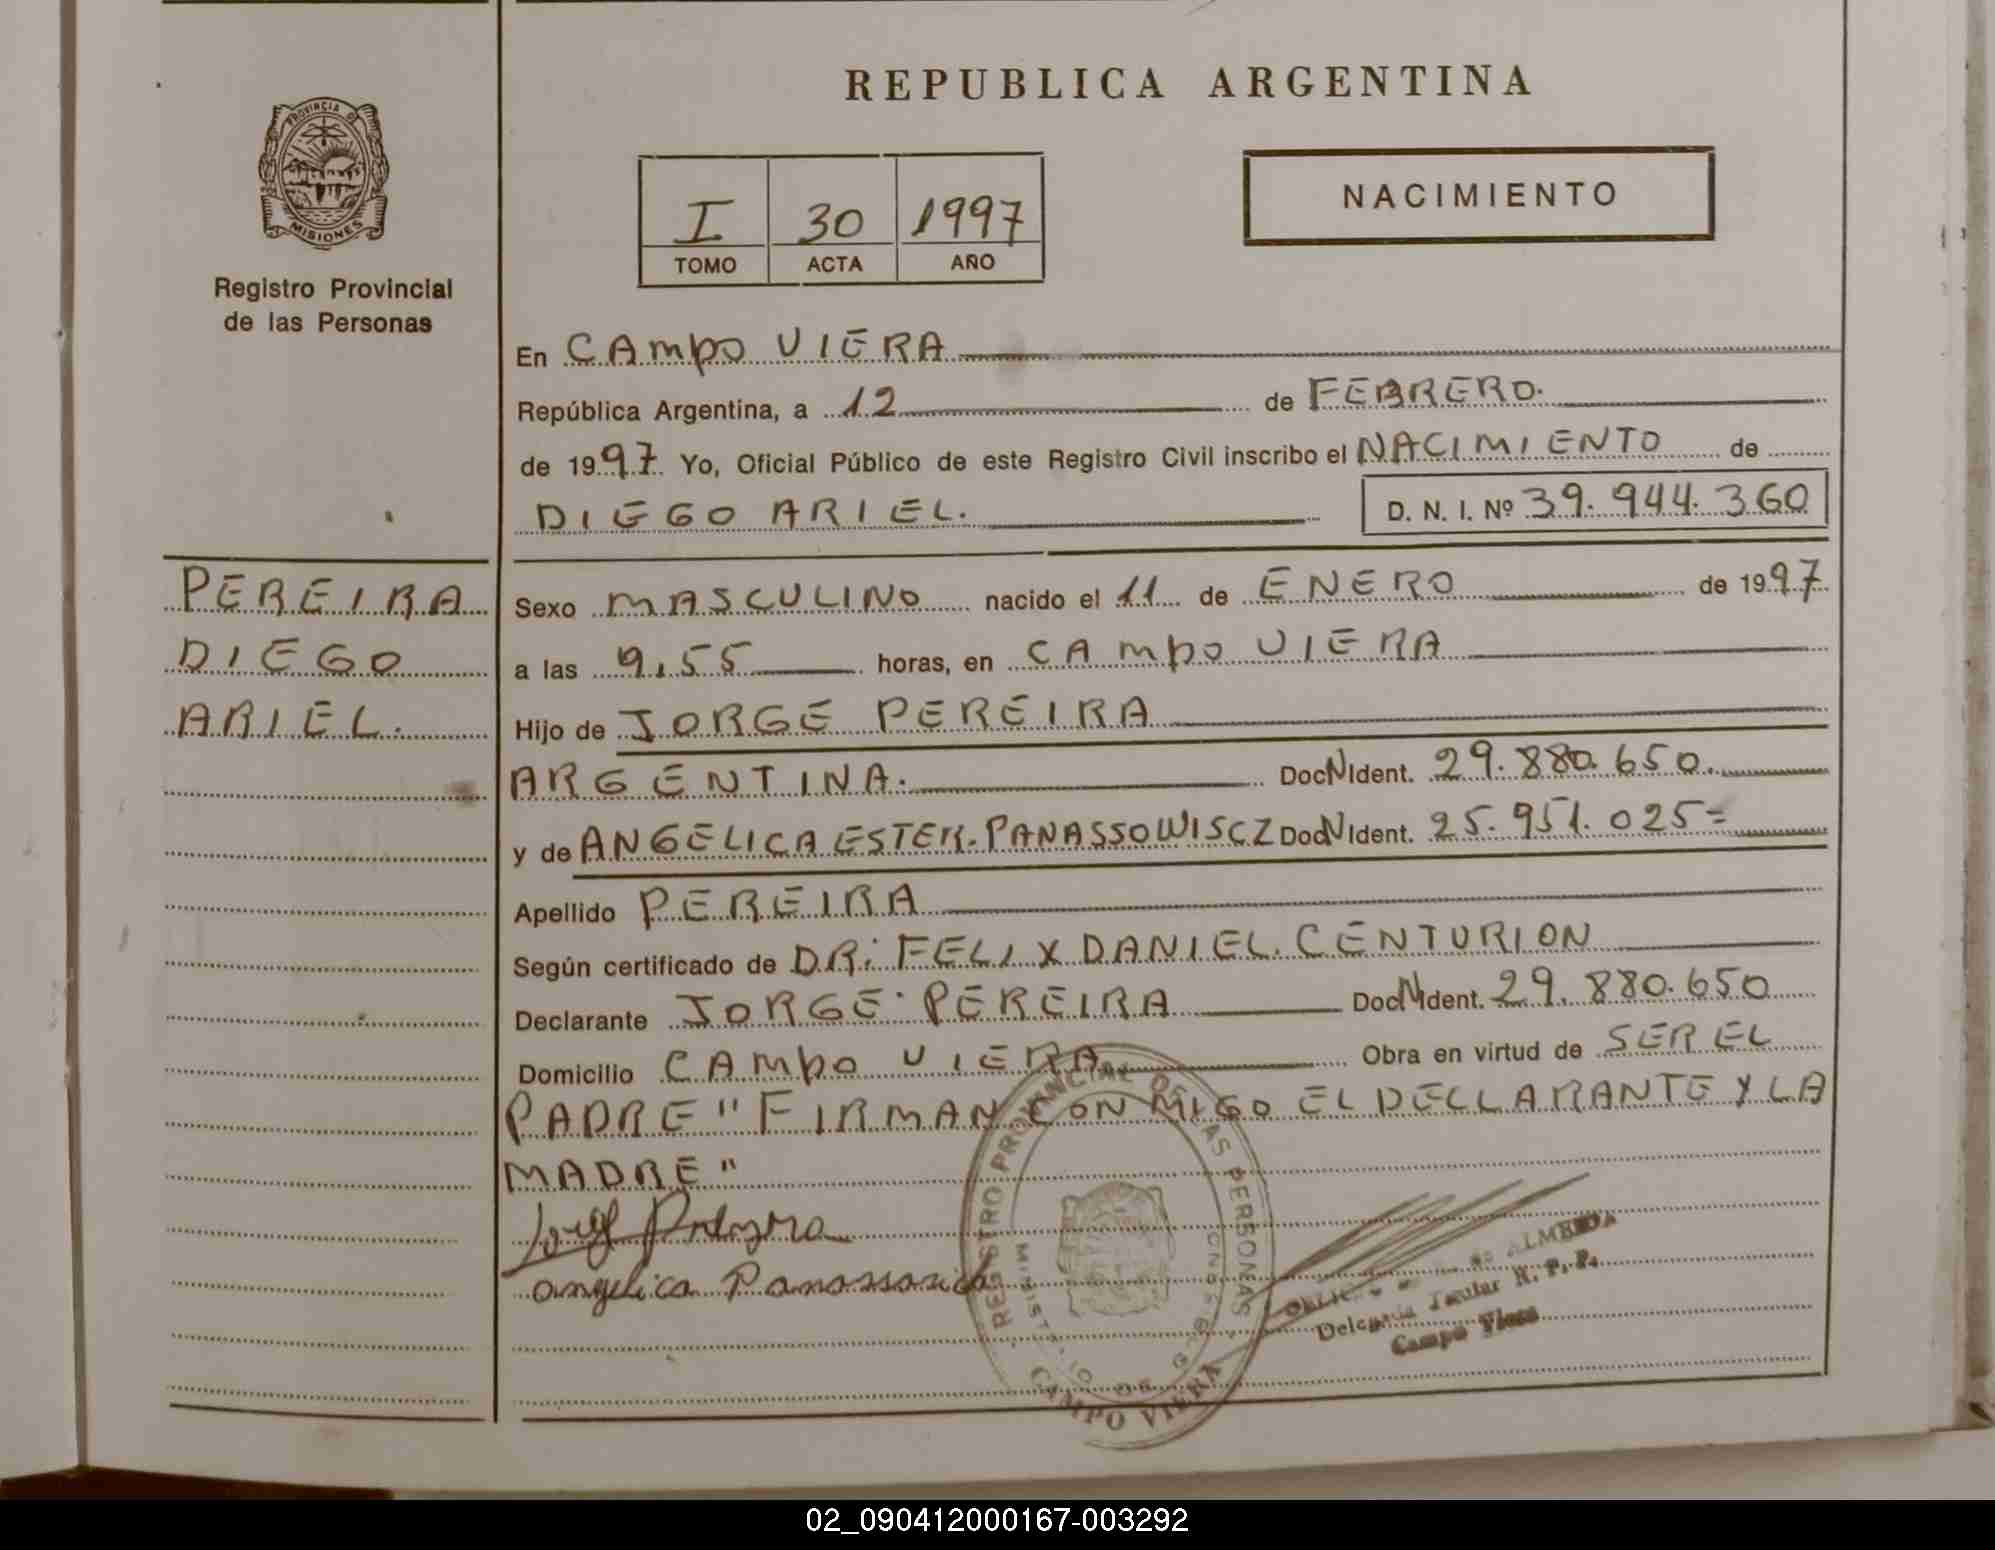 REPUBLICA ARGENTINA
PROVINCIA DE
MISIONES
Registro Provincial
de las Personas
I 30 1997
TOMO ACTA AÑO
NACIMIENTO
En CAMPO VIERA
República Argentina, a 12 de FEBRERO.
de 1997. Yo, Oficial Público de este Registro Civil inscribo el NACIMIENTO de
DIEGO ARIEL. D. N. I. Nº 39.944.360
PEREIRA
DIEGO
ARIEL.
Sexo MASCULINO nacido el 11 de ENERO de 1997
a las 9,55 horas, en CAMPO VIERA
Hijo de JORGE PEREIRA
ARGENTINA. Doc N Ident. 29.880.650.
y de ANGELICA ESTER. PANASSOWISCZ Doc N Ident. 25.951.025=
Apellido PEREIRA
Según certificado de DR: FELIX DANIEL CENTURION
Declarante JORGE PEREIRA Doc N Ident. 29.880.650
Domicilio CAMPO VIERA Obra en virtud de SER EL
PADRE "FIRMAN CON MIGO EL DECLARANTE Y LA
MADRE"
angelica
REGISTRO PROVINCIAL DE LAS PERSONAS
CAMPO VIERA
ALMEIDA
Delegada Titular R. P. P.
Campo Viera
02_090412000167-003292